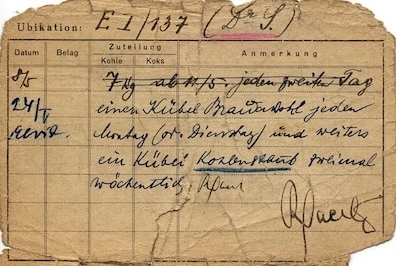 Ubikation: E I/137 (Dr S.)
Datum Belag Zuteilung Anmerkung
Kohle Koks
8/5 7 Kg ab 11/5. jeden zweiten Tag
24/V einen Kübel jeden
Montag (od. Dienstag) und weiters
ein Kübel Kohlenstaub zweimal
wöchentlich.